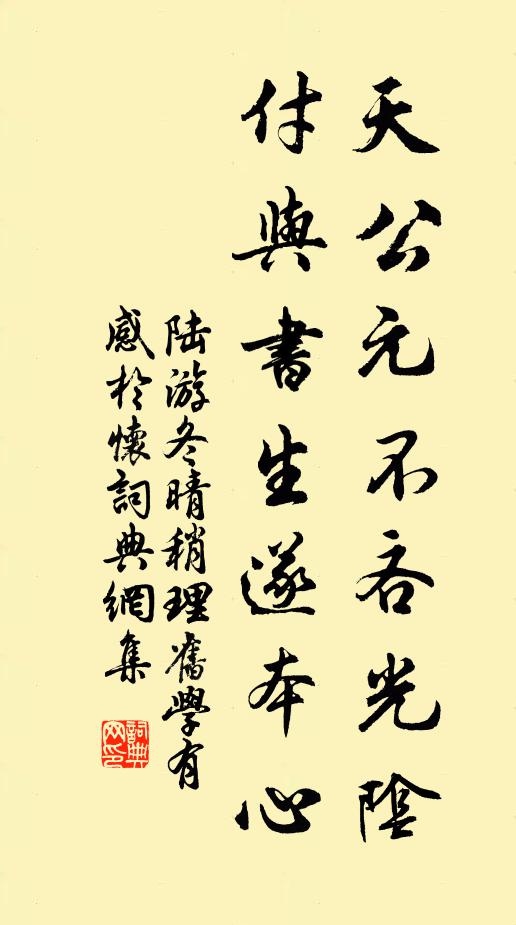 天公元不吝光陰
付與書生遂本心
陸游冬晴稍理舊學有
感於懷詞典網集
詞典網印